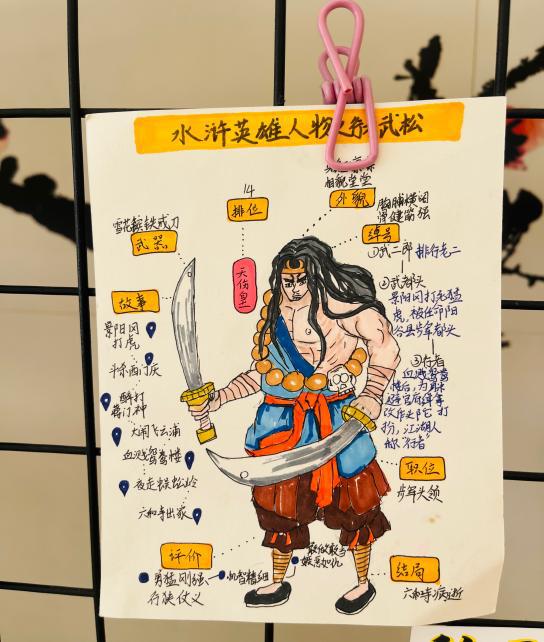 水浒英雄人物之系武松
相貌堂堂
外貌
胸脯横阔
14
排位
雪花镔铁戒刀
武器
绰号
①武二郎 排行老二
天伤星
②武都头
景阳冈打死猛
虎,被任命阳
谷县步军都头
③行者
血溅鸳鸯
楼后,为躲
避官府缉拿
改作头陀打
扮,江湖人
称"行者"
故事
景阳冈
打虎
斗杀西门庆
醉打
蒋门神
大闹飞云浦
血溅鸳鸯楼
夜走蜈蚣岭
六和寺出家
职位
步军头领
评价
勇猛刚强
机智精细
敢做敢当
嫉恶如仇
行侠仗义
结局
六和寺